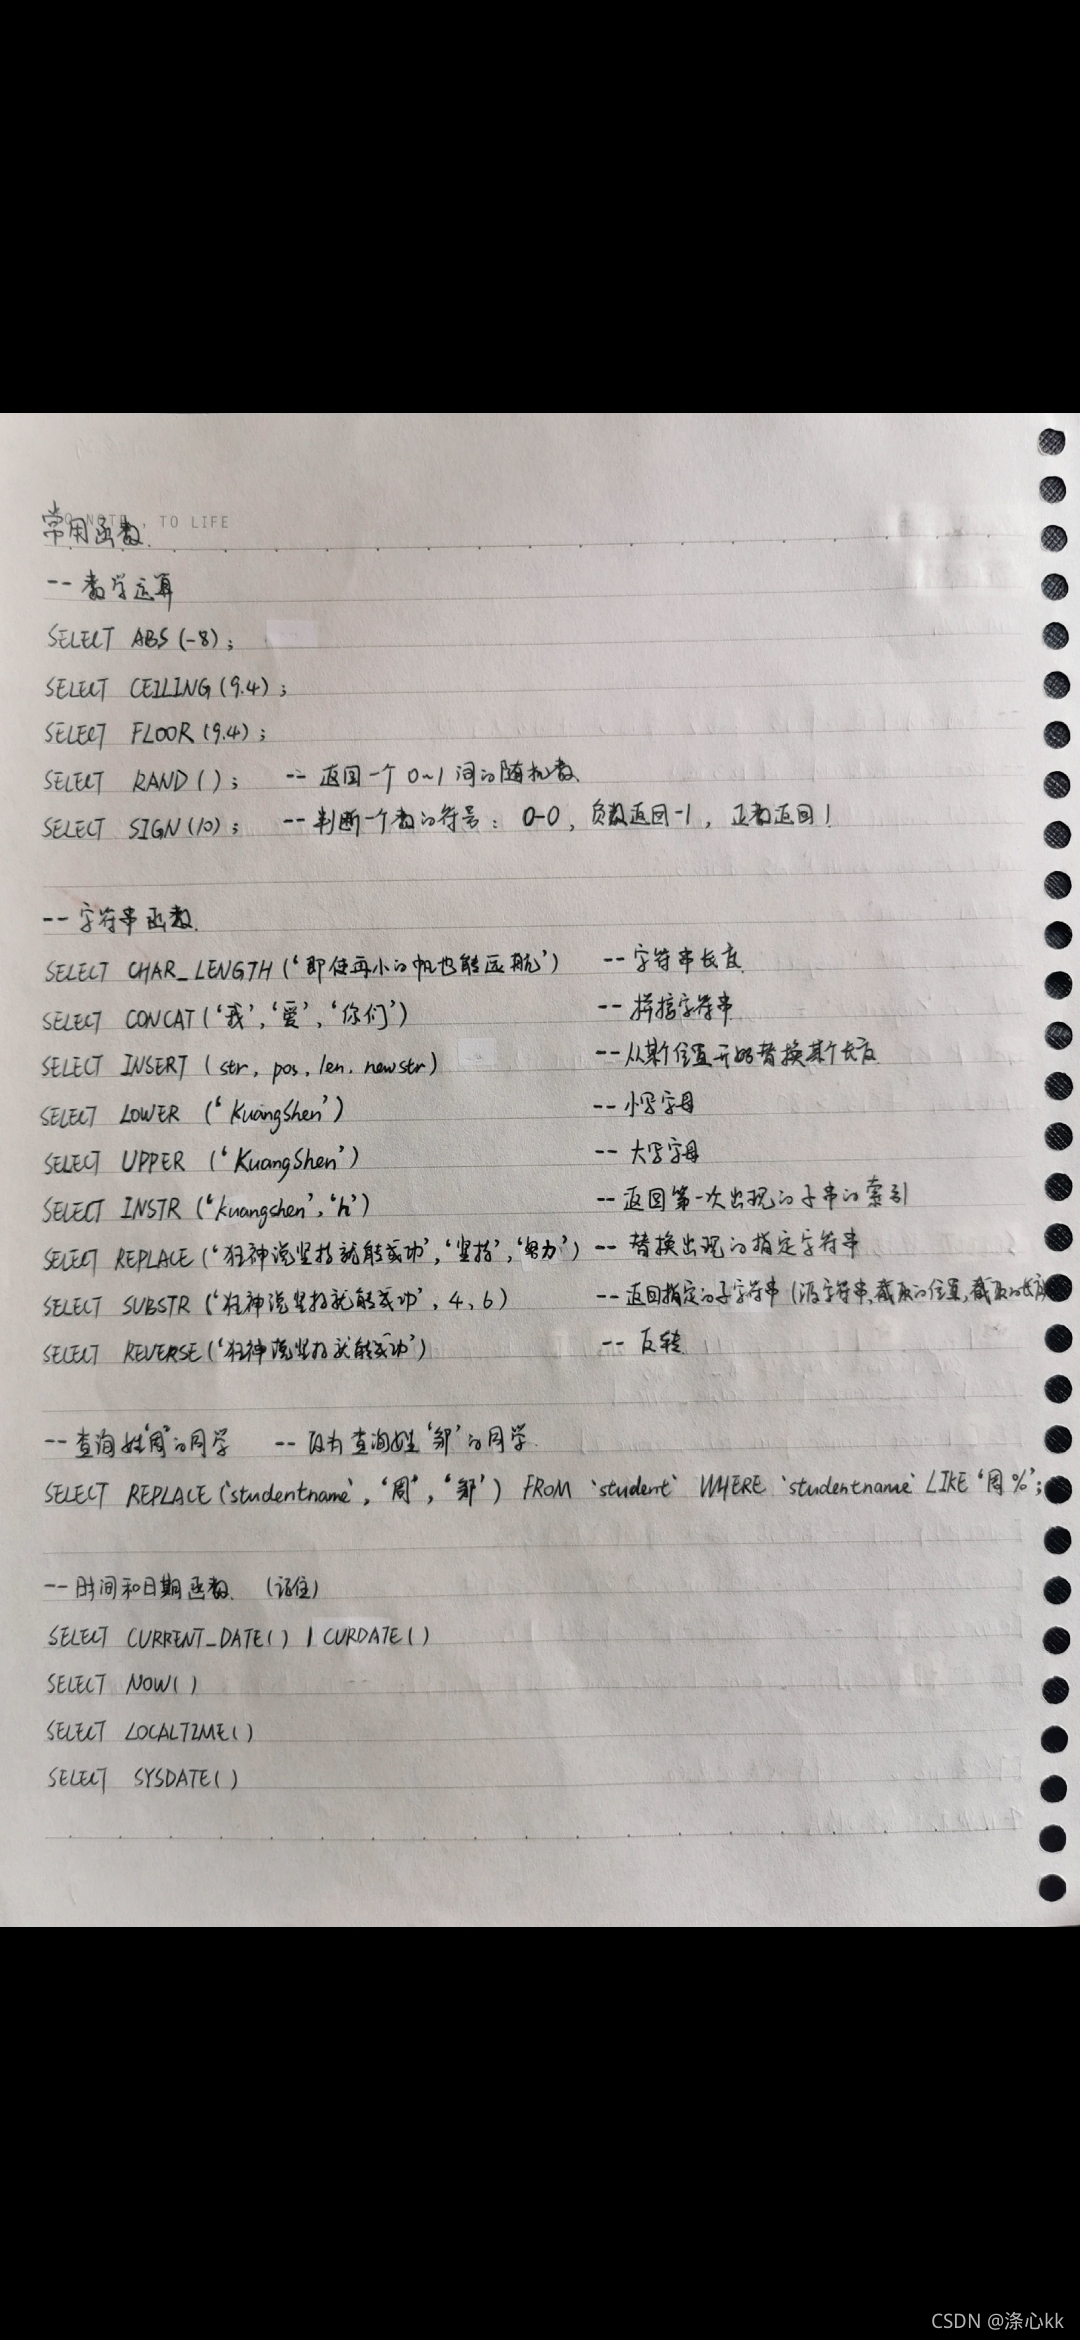 TO LIFE
常用函数.
-- 数学运算
SELECT ABS(-8);
SELECT CEILING(9.4);
SELECT FLOOR(9.4);
SELECT RAND(); -- 返回一个0~1间的随机数
SELECT SIGN(10); -- 判断一个数的符号: 0-0, 负数返回-1, 正数返回1
-- 字符串函数.
SELECT CHAR_LENGTH('即使再小的帆也能远航') -- 字符串长度
SELECT CONCAT('我','爱','你们') -- 拼接字符串
SELECT INSERT (str, pos, len, newstr) -- 从某个位置开始替换某个长度
SELECT LOWER ('KuangShen') -- 小写字母
SELECT UPPER ('KuangShen') -- 大写字母
SELECT INSTR ('kuangshen','h') -- 返回第一次出现的子串的索引
SELECT REPLACE('狂神说坚持就能成功','坚持','努力') -- 替换出现的指定字符串
SELECT SUBSTR('狂神说坚持就能成功', 4, 6) -- 返回指定的子字符串 (源字符串,截取的位置,截取的长度
SELECT REVERSE('狂神说坚持就能成功') -- 反转
-- 查询姓'周'的同学 -- 改为查询姓'邹'的同学.
SELECT REPLACE(`studentname`, '周', '邹') FROM `student` WHERE `studentname` LIKE '周%';
-- 时间和日期函数 (记住)
SELECT CURRENT_DATE() | CURDATE()
SELECT NOW()
SELECT LOCALTIME()
SELECT SYSDATE()
CSDN @涤心kk